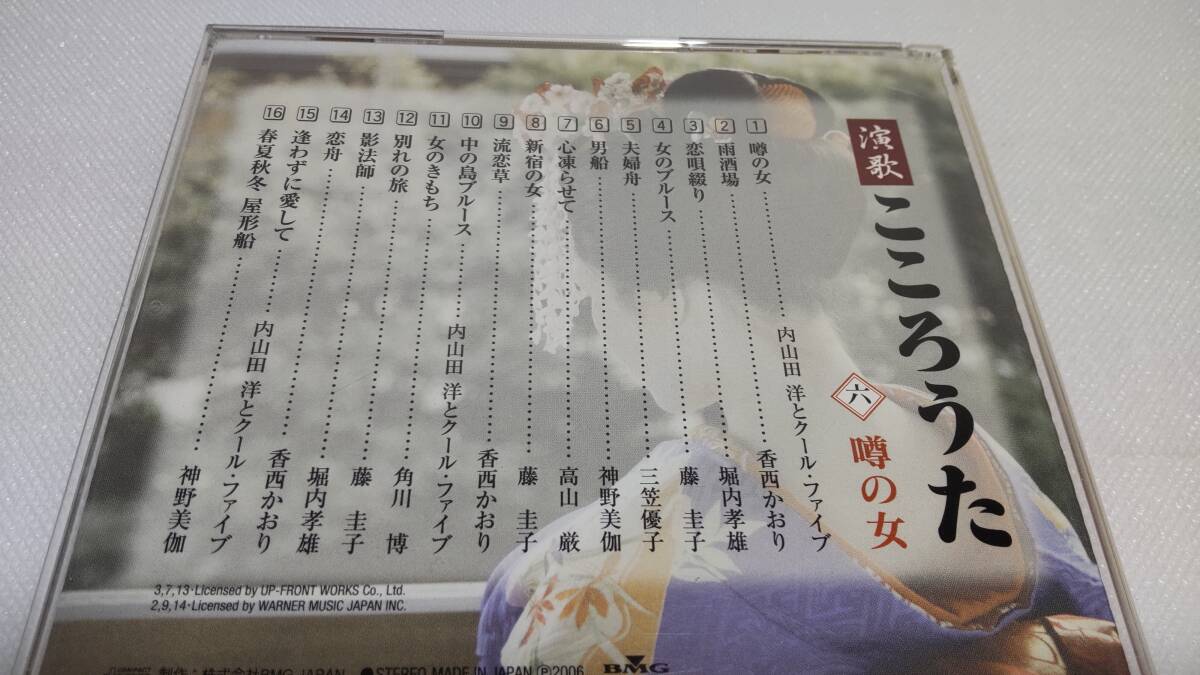 演歌
こころうた
六 噂の女
1 噂の女……内山田 洋とクール・ファイブ
2 雨酒場……香西かおり
3 恋唄綴り……堀内孝雄
4 女のブルース……藤 圭子
5 夫婦舟……三笠優子
6 男船……神野美伽
7 心凍らせて……高山 厳
8 新宿の女……藤 圭子
9 流恋草……香西かおり
10 中の島ブルース……内山田 洋とクール・ファイブ
11 女のきもち……角川 博
12 別れの旅……藤 圭子
13 影法師……堀内孝雄
14 恋舟……香西かおり
15 逢わずに愛して……内山田 洋とクール・ファイブ
16 春夏秋冬 屋形船……神野美伽
3,7,13・Licensed by UP-FRONT WORKS Co., Ltd.
2,9,14・Licensed by WARNER MUSIC JAPAN INC.
制作：株式会社BMG JAPAN ●STEREO MADE IN JAPAN Ⓟ2006 BMG